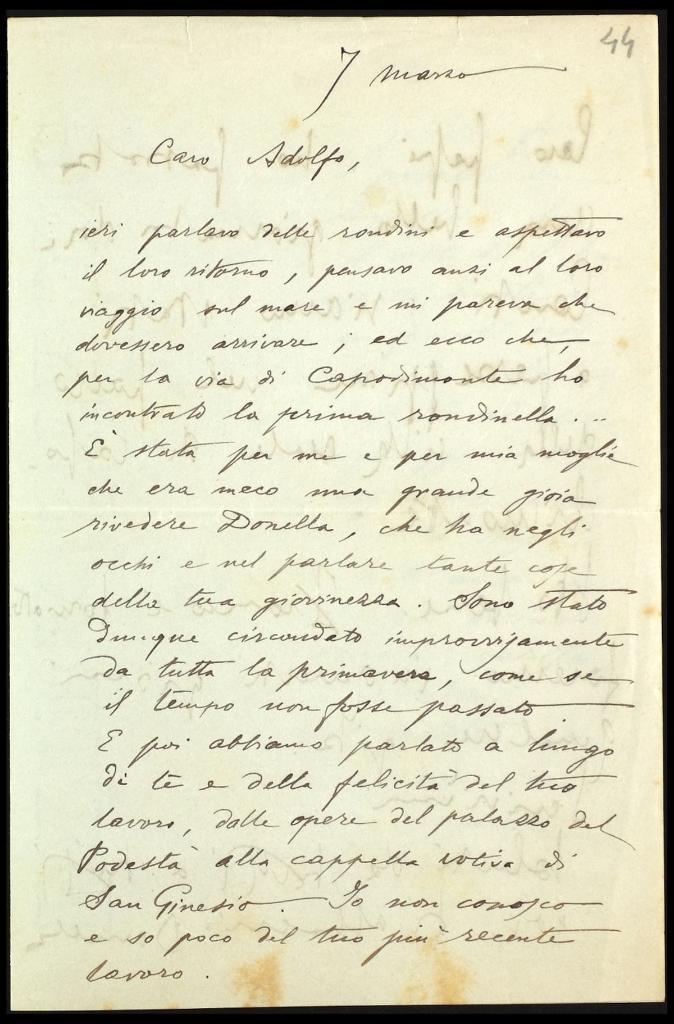 44
7 marzo
Caro Adolfo,
ieri parlavo delle rondini e aspettavo
il loro ritorno, pensavo anzi al loro
viaggio sul mare e mi pareva che
dovessero arrivare; ed ecco che,
per la via di Capodimonte ho
incontrato la prima rondinella...
È stata per me e per mia moglie
che era meco una grande gioia
rivedere Donella, che ha negli
occhi e nel parlare tante cose
della tua giovinezza. Sono stato
dunque circondato improvvisamente
da tutta la primavera, come se
il tempo non fosse passato
E poi abbiamo parlato a lungo
di te e della felicità del tuo
lavoro, dalle opere del palazzo del
Podestà alla cappella votiva di
San Ginesio. Io non conosco
e so poco del tuo più recente
lavoro.